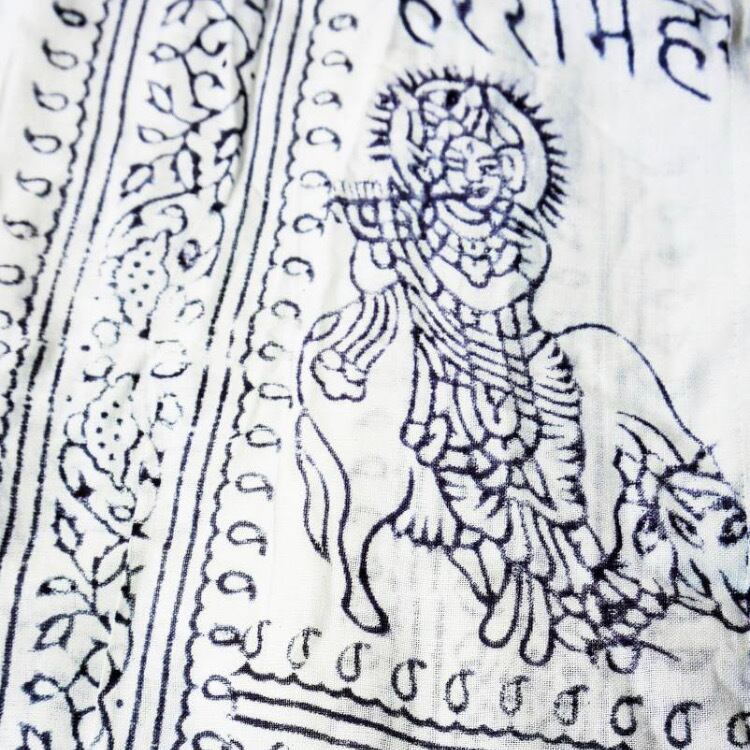 हरे राम ह